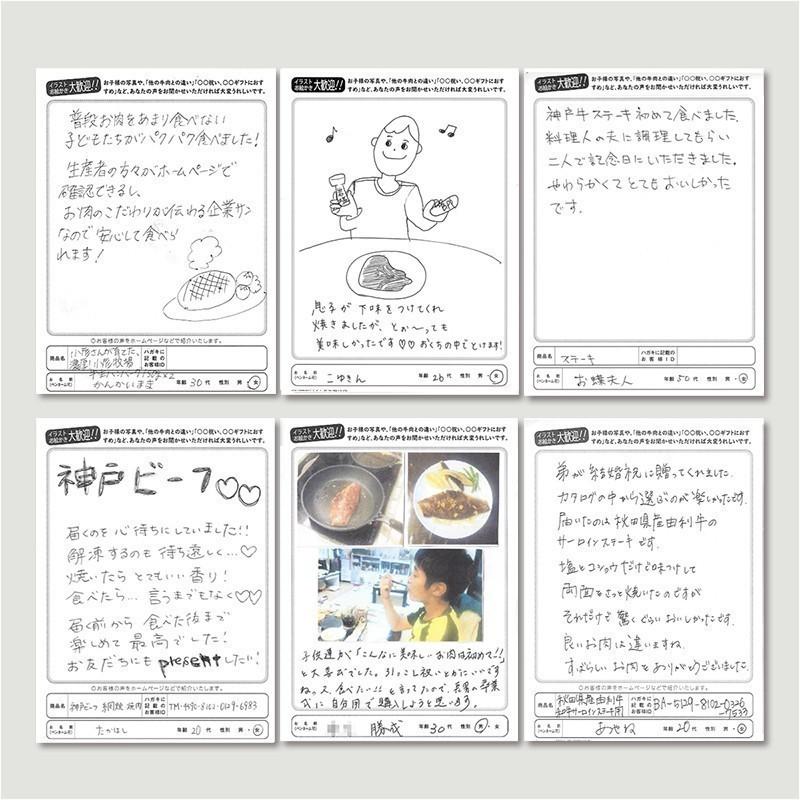 イラスト お絵かき 大歓迎!!
お子様の写真や、「他の牛肉との違い」「〇〇祝い、〇〇ギフトにおす
すめ」など、あなたの声をお聞かせいただければ大変うれしいです。
普段お肉をあまり食べない
子どもたちがパクパク食べました!
生産者の方々がホームページで
確認できるし、
お肉のこだわりが伝わる企業サン
なので安心して食べら
れます!
◎お客様の声をホームページなどで紹介いたします。
商品名
小形さんが育てた、
ハガキに記載のお客様ID
お名前(ペンネーム可)
かんかいまき
年齢 30代 性別 男・女
イラスト お絵かき 大歓迎!!
お子様の写真や、「他の牛肉との違い」「〇〇祝い、〇〇ギフトにおす
すめ」など、あなたの声をお聞かせいただければ大変うれしいです。
息子が下味をつけてくれ
焼きましたが、とぉ〜っても
美味しかったです♡♡おくちの中でとけます!
お名前(ペンネーム可)
こゆきん
年齢 26代 性別 男・女
イラスト お絵かき 大歓迎!!
お子様の写真や、「他の牛肉との違い」「〇〇祝い、〇〇ギフトにおす
すめ」など、あなたの声をお聞かせいただければ大変うれしいです。
神戸牛ステーキ初めて食べました。
料理人の夫に調理してもらい
二人で記念日にいただきました。
やわらかくてとてもおいしかった
です。
商品名
ステーキ
ハガキに記載のお客様ID
お名前(ペンネーム可)
お蝶夫人
年齢 50代 性別 男・女
イラスト お絵かき 大歓迎!!
お子様の写真や、「他の牛肉との違い」「〇〇祝い、〇〇ギフトにおす
すめ」など、あなたの声をお聞かせいただければ大変うれしいです。
神戸ビーフ♡♡
届くのを心待ちにしていました!!
解凍するのも待ち遠しく…♡
焼いたらとてもいい香り!
食べたら…言うまでもなく♡♡
届く前から食べた後まで
楽しめて最高でした!
お友だちにもpresentしたい!
◎お客様の声をホームページなどで紹介いたします。
商品名
神戸ビーフ 網焼 焼肉
ハガキに記載のお客様ID
TM-4590-8102-0129-6983
お名前(ペンネーム可)
たかはし
年齢 20代 性別 男・女
イラスト お絵かき 大歓迎!!
お子様の写真や、「他の牛肉との違い」「〇〇祝い、〇〇ギフトにおす
すめ」など、あなたの声をお聞かせいただければ大変うれしいです。
子供達が「こんなに美味しいお肉は初めて!!」
と大喜びでした。引っこし祝いとかにいいです
ねっ又、食べたい!!と言ってたので、長男の卒業
式に自分用で購入しようと思います。
お名前(ペンネーム可)
勝成
年齢 30代 性別 男・女
イラスト お絵かき 大歓迎!!
お子様の写真や、「他の牛肉との違い」「〇〇祝い、〇〇ギフトにおす
すめ」など、あなたの声をお聞かせいただければ大変うれしいです。
弟が結婚祝に贈ってくれました。
カタログの中から選ぶのが楽しかったです。
届いたのは秋田県産由利牛の
サーロインステーキです。
塩とコショウだけで味つけして
両面をさっと焼いたのですが
それだけで驚くぐらいおいしかったです。
良いお肉は違いますね。
すばらしいお肉をありがとうございました。
◎お客様の声をホームページなどで紹介いたします。
商品名
秋田県産由利牛
和牛サーロインステーキ用
ハガキに記載のお客様ID
BA-5129-8102-0326
-7533
お名前(ペンネーム可)
年齢 20代 性別 男・女